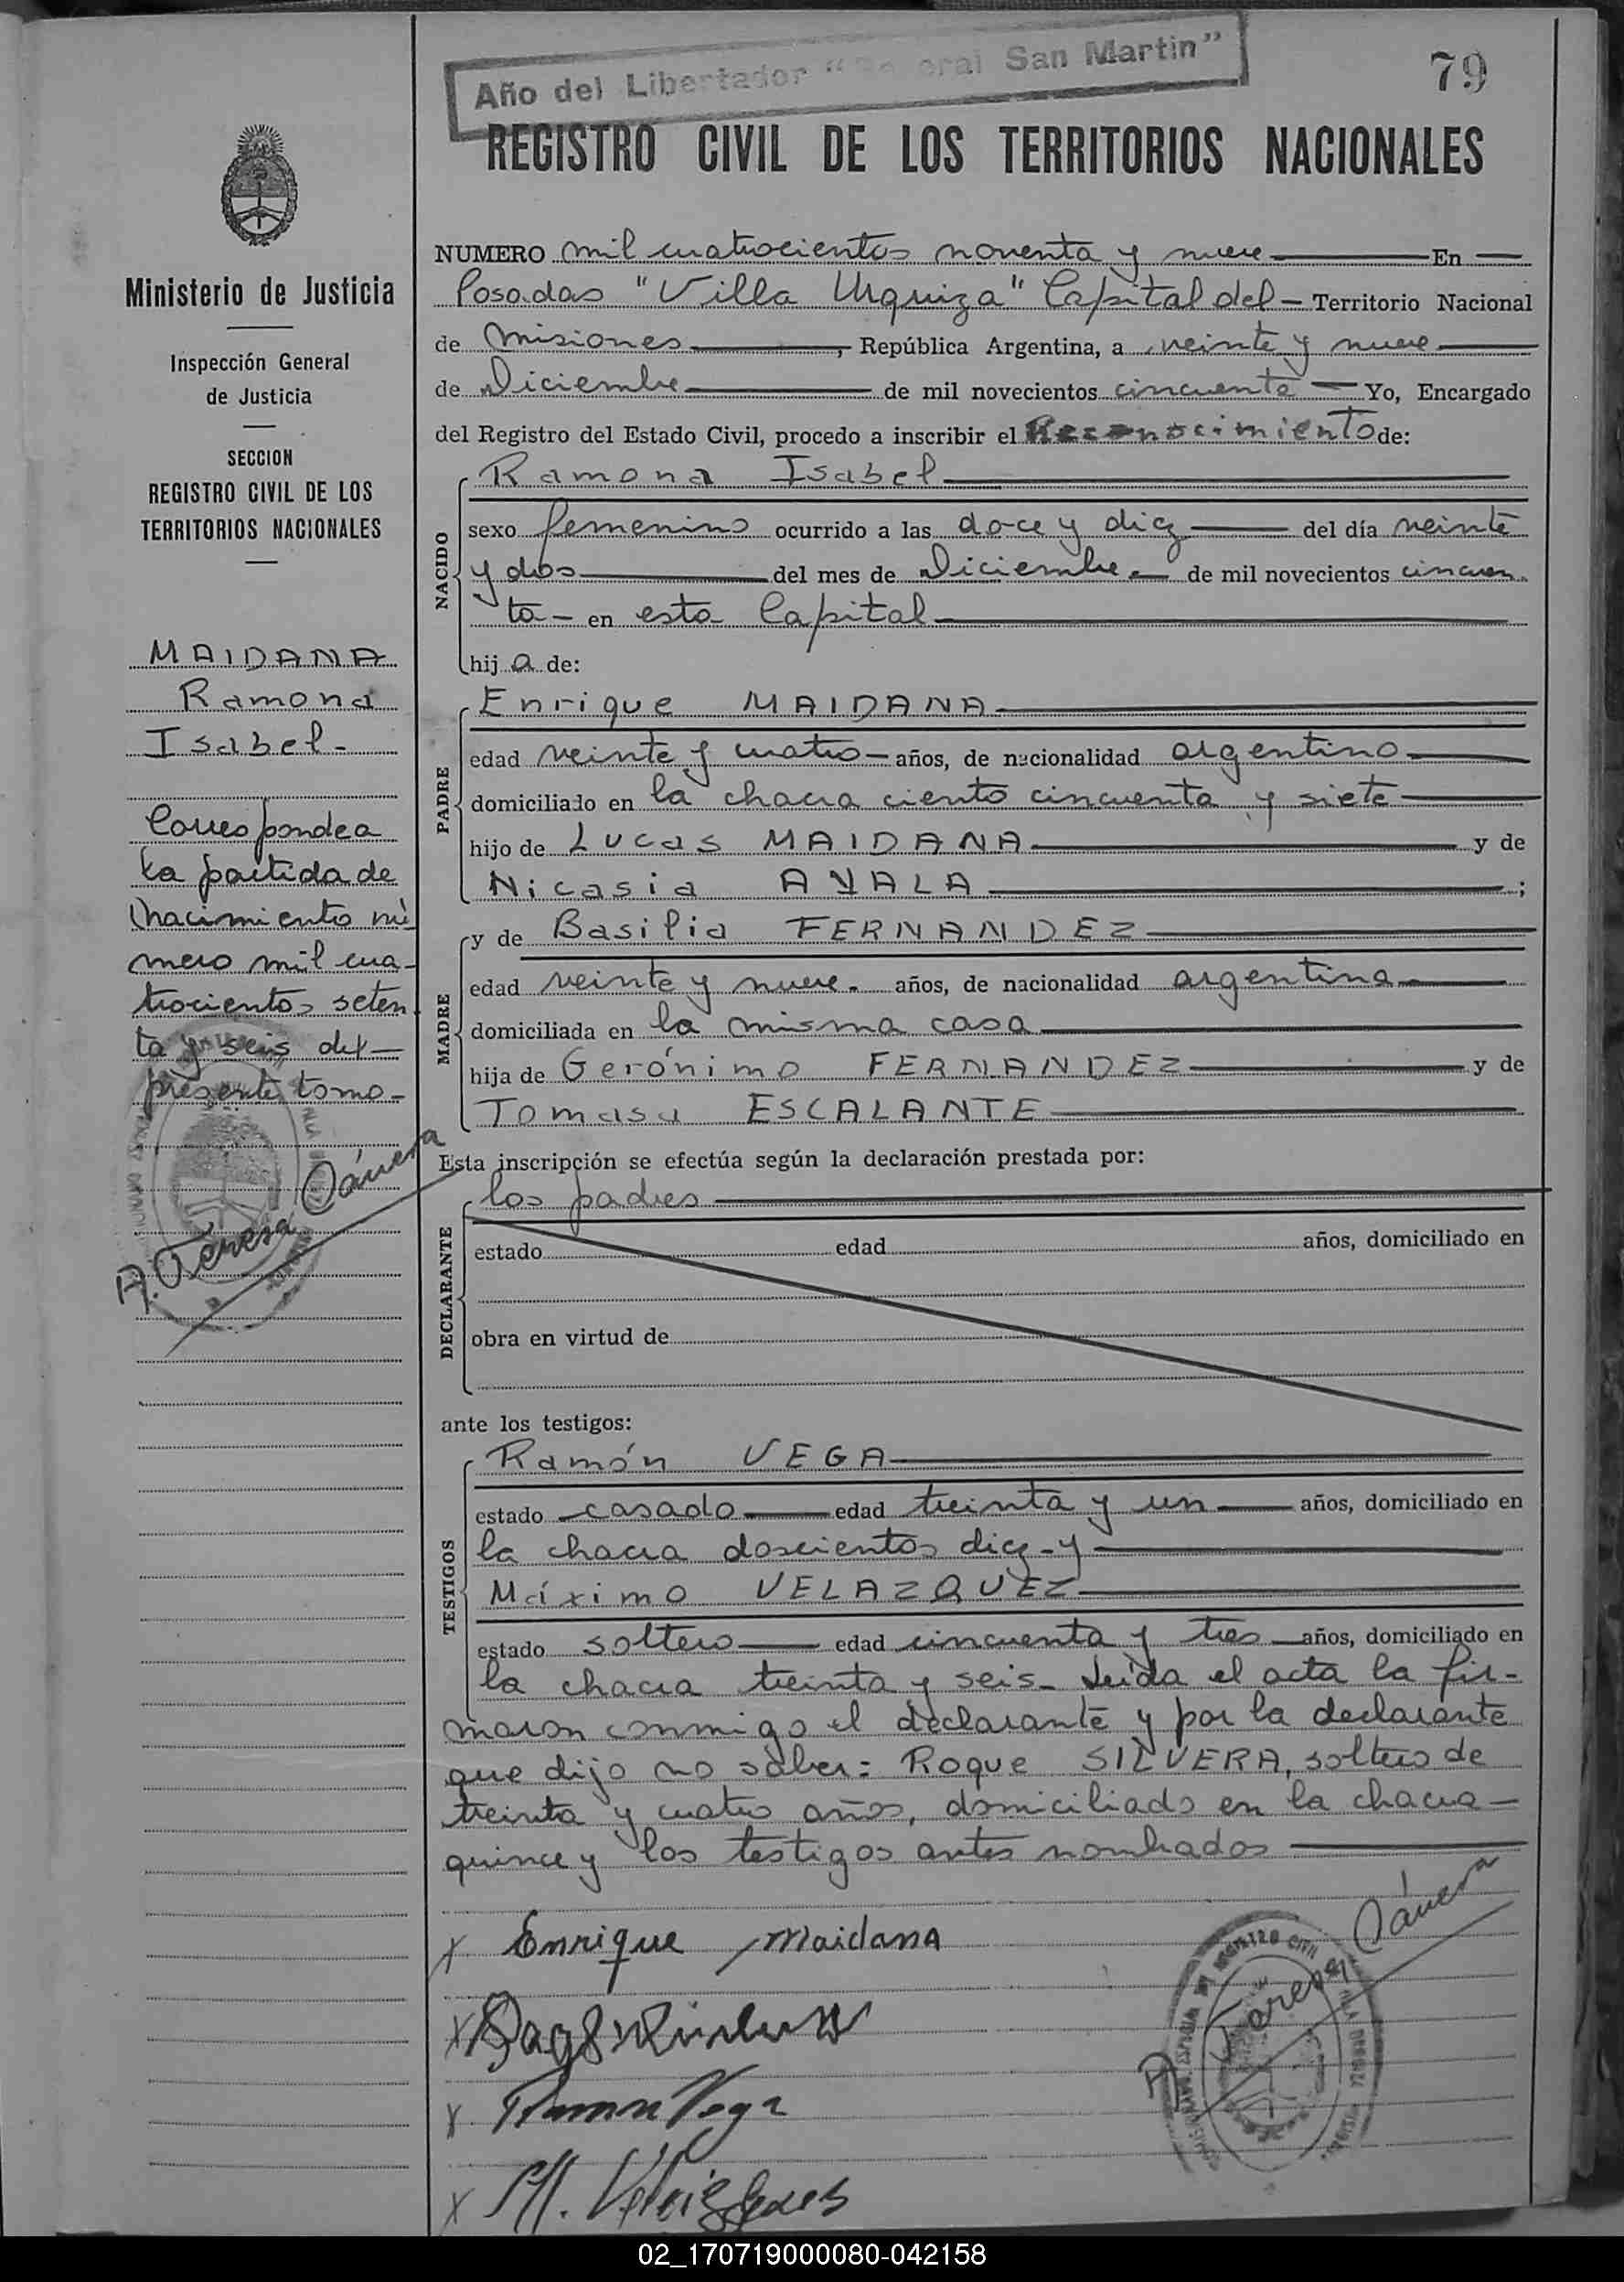 Año del Libertador "General San Martin"
79
REGISTRO CIVIL DE LOS TERRITORIOS NACIONALES
Ministerio de Justicia
Inspección General
de Justicia
SECCION
REGISTRO CIVIL DE LOS
TERRITORIOS NACIONALES
MAIDANA
Ramona
Isabel-
Corresponde a
la partida de
nacimiento nú
mero mil cua-
trocientos seten
ta y seis del-
presente tomo-
NUMERO mil cuatrocientos noventa y nueve En
Posadas "Villa Urquiza" Capital del - Territorio Nacional
de Misiones, República Argentina, a veinte y nueve
de Diciembre de mil novecientos cincuenta - Yo, Encargado
del Registro del Estado Civil, procedo a inscribir el Reconocimiento de:
Ramona Isabel
NACIDO
sexo femenino ocurrido a las doce y diez del día veinte
y dos del mes de Diciembre de mil novecientos cincuen-
ta - en esta Capital
hija de:
Enrique MAIDANA
PADRE
edad veinte y cuatro - años, de nacionalidad argentino
domiciliado en la chacra ciento cincuenta y siete
hijo de Lucas MAIDANA y de
Nicasia AYALA ;
y de Basilia FERNANDEZ
MADRE
edad veinte y nueve. años, de nacionalidad argentina
domiciliada en la misma casa
hija de Gerónimo FERNANDEZ y de
Tomasa ESCALANTE
Esta inscripción se efectúa según la declaración prestada por:
los padres
DECLARANTE
estado edad años, domiciliado en
obra en virtud de
ante los testigos:
Ramón VEGA
TESTIGOS
estado casado edad treinta y un años, domiciliado en
la chacra doscientos diez - y
Máximo VELAZQUEZ
estado soltero edad cincuenta y tres años, domiciliado en
la chacra treinta y seis- Leída el acta la fir-
maron conmigo el declarante y por la declarante
que dijo no saber: Roque SILVERA, soltero de
treinta y cuatro años, domiciliado en la chacra-
quince y los testigos antes nombrados
x Enrique Maidana
x
x Ramon Vega
x M.
02_170719000080-042158